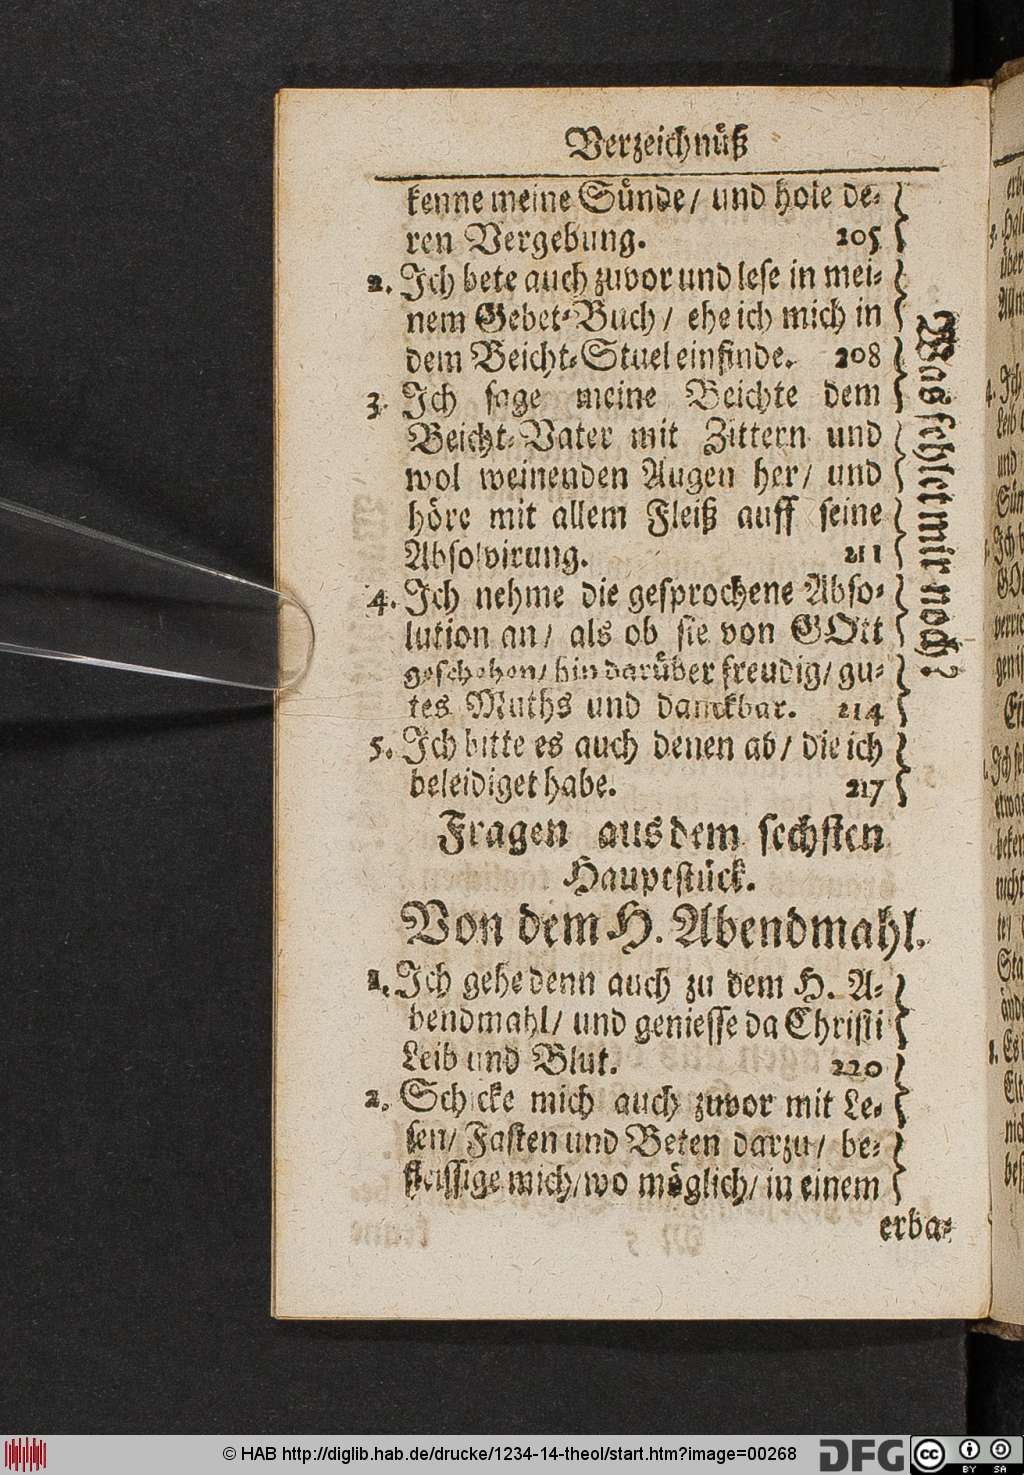 Verzeichnüß
kenne meine Sünde / und hole de-
ren Vergebung. 205
2. Ich bete auch zuvor und lese in mei-
nem Gebet-Buch / ehe ich mich in
dem Beicht-Stuel einfinde. 208
3. Ich sage meine Beichte dem
Beicht-Vater mit Zittern und
wol weinenden Augen her / und
höre mit allem Fleiß auff seine
Absolvirung. 211
4. Ich nehme die gesprochene Abso-
lution an / als ob sie von GOtt
geschehen / bin darüber freudig / gu-
tes Muths und danckbar. 214
5. Ich bitte es auch denen ab / die ich
beleidiget habe. 217
Was fehlet mir noch?
Fragen aus dem sechsten
Hauptstück.
Von dem H. Abendmahl.
1. Ich gehe denn auch zu dem H. A-
bendmahl / und geniesse da Christi
Leib und Blut. 220
2. Schicke mich auch zuvor mit Le-
sen / Fasten und Beten darzu / be-
fleissige mich / wo möglich / in einem
erba-
© HAB http://diglib.hab.de/drucke/1234-14-theol/start.htm?image=00268
DFG
cc BY SA